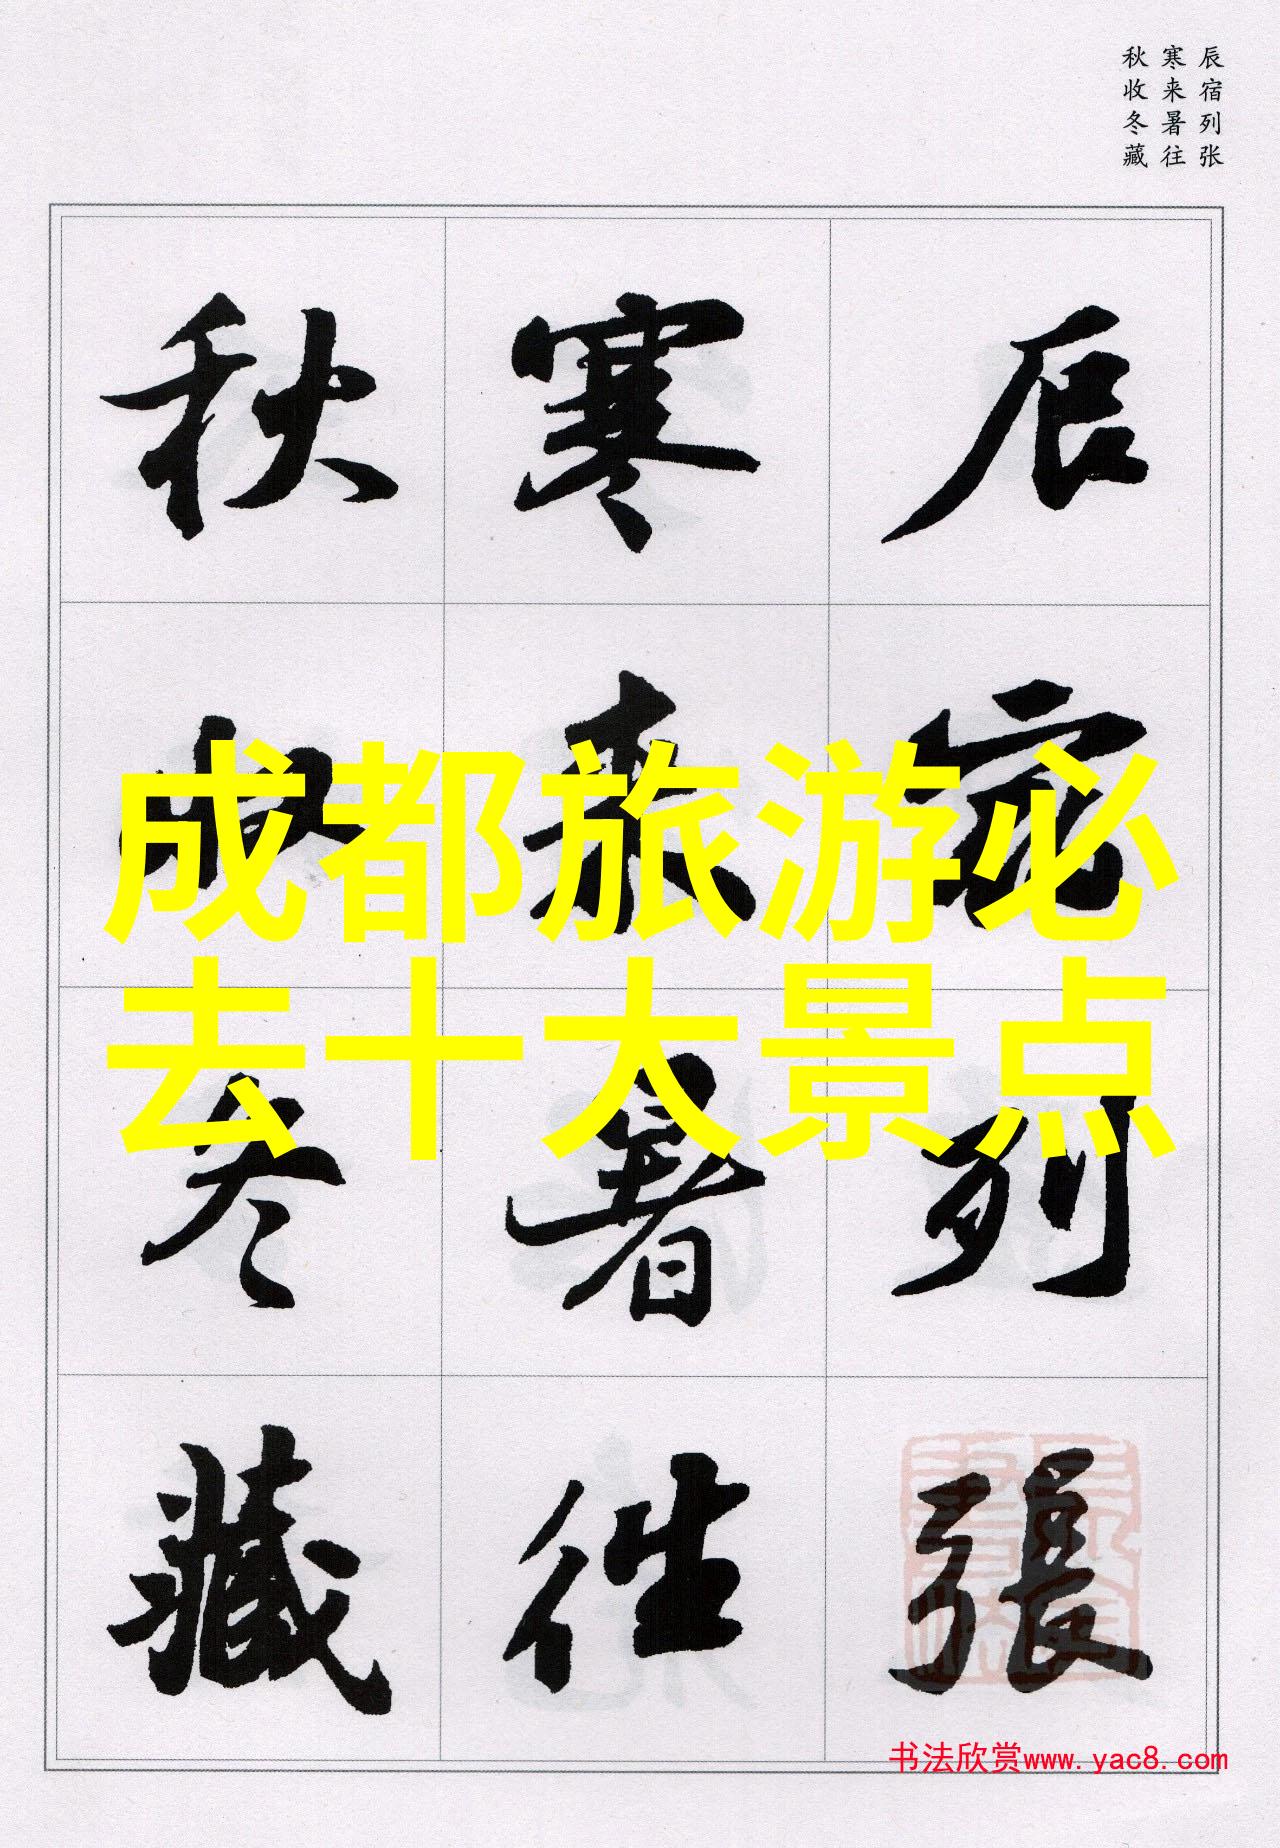 辰宿列张
寒来暑往
秋收冬藏
辰宿列張
寒来暑往
秋收冬藏
成都旅游必
去十大景点
书法欣赏www.yac8.com